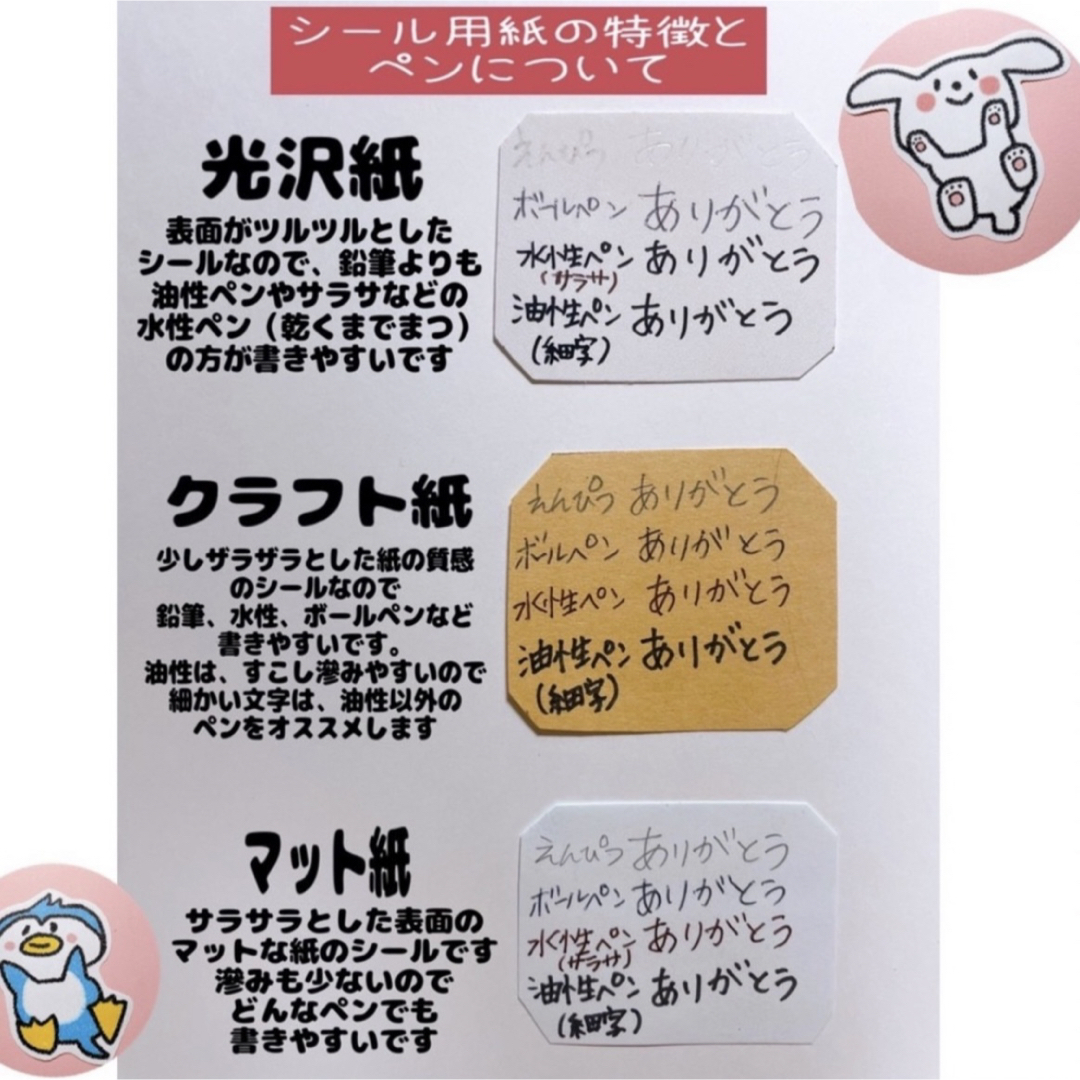 シール用紙の特徴と
ペンについて
光沢紙
表面がツルツルとした
シールなので、鉛筆よりも
油性ペンやサラサなどの
水性ペン（乾くまでまつ）
の方が書きやすいです
えんぴつ ありがとう
ボールペン ありがとう
水性ペン ありがとう
(サラサ)
油性ペン ありがとう
(細字)
クラフト紙
少しザラザラとした紙の質感
のシールなので
鉛筆、水性、ボールペンなど
書きやすいです。
油性は、すこし滲みやすいので
細かい文字は、油性以外の
ペンをオススメします
えんぴつ ありがとう
ボールペン ありがとう
水性ペン ありがとう
油性ペン ありがとう
(細字)
マット紙
サラサラとした表面の
マットな紙のシールです
滲みも少ないので
どんなペンでも
書きやすいです
えんぴつ ありがとう
ボールペン ありがとう
水性ペン ありがとう
(サラサ)
油性ペン ありがとう
(細字)